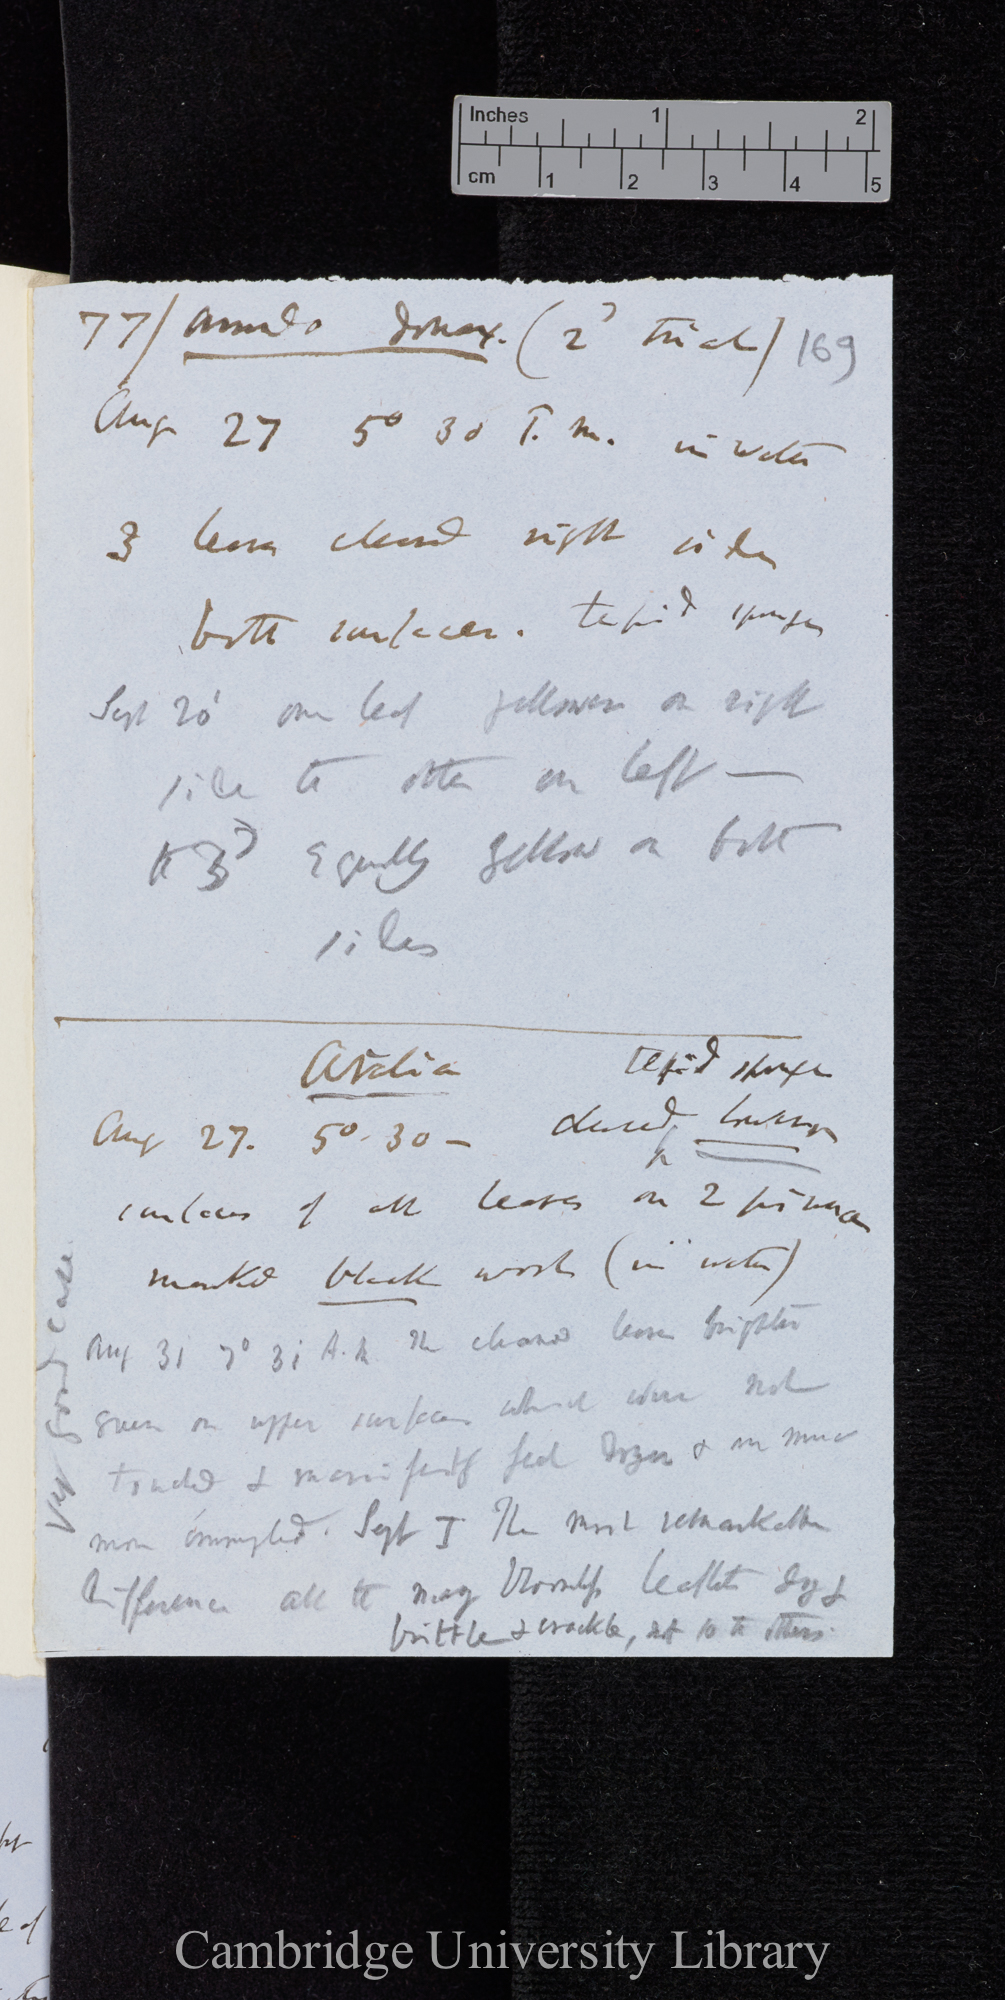 Inches 1 2
cm 1 2 3 4 5
77/ Arundo Donax. (2d trial) 169
Aug 27 5° 30 P.m. in water
3 leaves cleaned right sides
both surfaces. tepid sponge
Sept 20 one leaf yellower on right
side the other on left —
the 3d Equally yellow on both
sides
Aralia tepid sponge
Aug 27. 5° 30 — cleaned
surfaces of all leaves on 2
marked black wool (in water)
Aug 31 7° 31 A.m The cleaned leaves brighter
green on upper surfaces which were not
touched & manifestly feel dryer & are much
more crumpled. Sept 1 The most remarkable
difference all the leaflets dry &
brittle & crackle, not so the others.
Very good case
Cambridge University Library